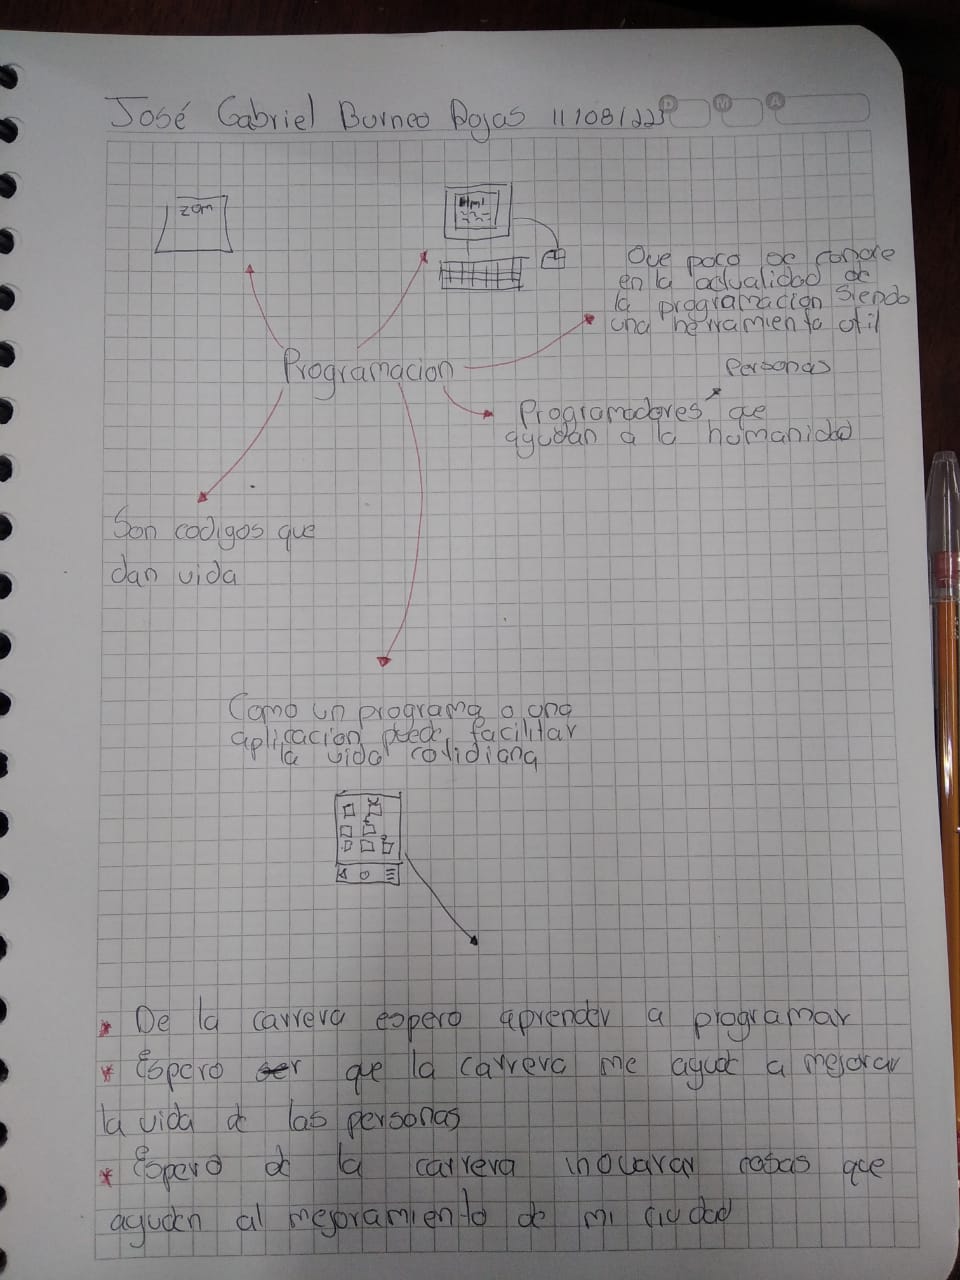 José Gabriel Borneo Rojas 11/08/22
D M A
zom
Html
Que poco se conore
en la actualidad de
la programacion siendo
una herramienta util
Programacion
Personas
Programadores que
ayudan a la humanidad
Son codigos que
dan vida
Como un programa o una
aplicacion puede facilitar
la vida cotidiana
* De la carrera espero aprender a programar
* Espero ser que la carrera me ayude a mejorar
la vida de las personas
* Espero de la carrera inovarar cosas que
ayuden al mejoramiento de mi ciudad